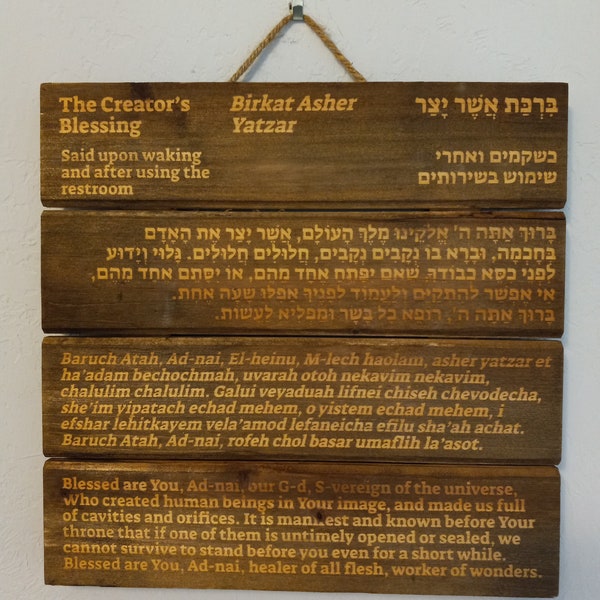 The Creator's
Blessing
Birkat Asher
Yatzar
בִּרְכַּת אֲשֶׁר יָצַר
Said upon waking
and after using the
restroom
כשקמים ואחרי
שימוש בשירותים
בָּרוּךְ אַתָּה ה' אֱלֹקֵינוּ מֶלֶךְ הָעוֹלָם, אֲשֶׁר יָצַר אֶת הָאָדָם
בְּחָכְמָה, וּבָרָא בוֹ נְקָבִים נְקָבִים, חֲלוּלִים חֲלוּלִים. גָּלוּי וְיָדוּעַ
לִפְנֵי כִסֵּא כְבוֹדֶךָ שֶׁאִם יִפָּתַח אֶחָד מֵהֶם, אוֹ יִסָּתֵם אֶחָד מֵהֶם,
אִי אֶפְשַׁר לְהִתְקַיֵּם וְלַעֲמוֹד לְפָנֶיךָ אֲפִלּוּ שָׁעָה אַחַת.
בָּרוּךְ אַתָּה ה', רוֹפֵא כָל בָּשָׂר וּמַפְלִיא לַעֲשׂוֹת.
Baruch Atah, Ad-nai, El-heinu, M-lech haolam, asher yatzar et
ha'adam bechochmah, uvarah otoh nekavim nekavim,
chalulim chalulim. Galui veyaduah lifnei chiseh chevodecha,
she'im yipatach echad mehem, o yistem echad mehem, i
efshar lehitkayem vela'amod lefaneicha efilu sha'ah achat.
Baruch Atah, Ad-nai, rofeh chol basar umaflih la'asot.
Blessed are You, Ad-nai, our G-d, S-vereign of the universe,
Who created human beings in Your image, and made us full
of cavities and orifices. It is manifest and known before Your
throne that if one of them is untimely opened or sealed, we
cannot survive to stand before you even for a short while.
Blessed are You, Ad-nai, healer of all flesh, worker of wonders.